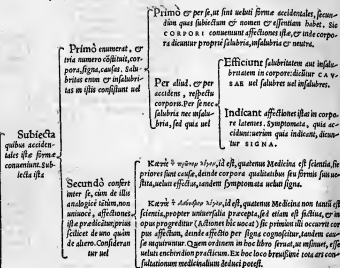 Subiecta
quibus acciden-
tales istæ formæ
conueniunt. Sub-
iecta ista
Primò enumerat, et
tria numero cõstituit, cor-
pora, signa, causas. Salu-
britas enim et insalubri-
tas in istis consistunt uel
Primò et per se, ut sint ueluti formæ accidentales, secun-
dùm quas subiectum et nomen et essentiam habet. Sic
CORPORI conueniunt affectiones istæ, et inde corpo-
ra dicuntur propriè salubria, insalubria et neutra.
Per aliud et per
accidens, respectu
corporis. Per se nec
salubria nec insalu-
bria, sed quia uel
Efficiunt salubritatem aut insalu-
britatem in corpore: dicitur CAV-
SAE uel salubres uel insalubres.
Indicant affectiones istas in corpo-
re latentes. Symptomata, quia ac-
cidunt: uerùm quia indicant, dicun-
tur SIGNA.
Secundò confert
inter se, cùm de illis
analogicè tãtùm, non
uniuocè, affectiones
istæ prædicétur, prius
scilicet de uno quàm
de altero. Considerantur
uel
Κατὰ τὸ πρῶτον λόγον, id est, quatenus Medicina est scientia, sic
priores sunt causæ, deinde corpora qualitatibus seu formis suis ue-
stita, ueluti effectus, tandem symptomata ueluti signa.
Κατὰ τὸ λόγον, id est, quatenus Medicina non tantùm est
scientia, propter uniuersalia præcepta, sed etiam est factiua, et in
opus progreditur (Actiones hîc uocat) sic primùm illi occurrit cor-
pus affectum, deinde affectio per signa cognoscitur, tandem cau-
sæ inquiruntur. Quem ordinem in hoc libro seruat, ut insinuet, esse
ueluti enchiridion practicum. Ex hoc loco breuissimè tota ars con-
sultationum medicinalium deduci potest.